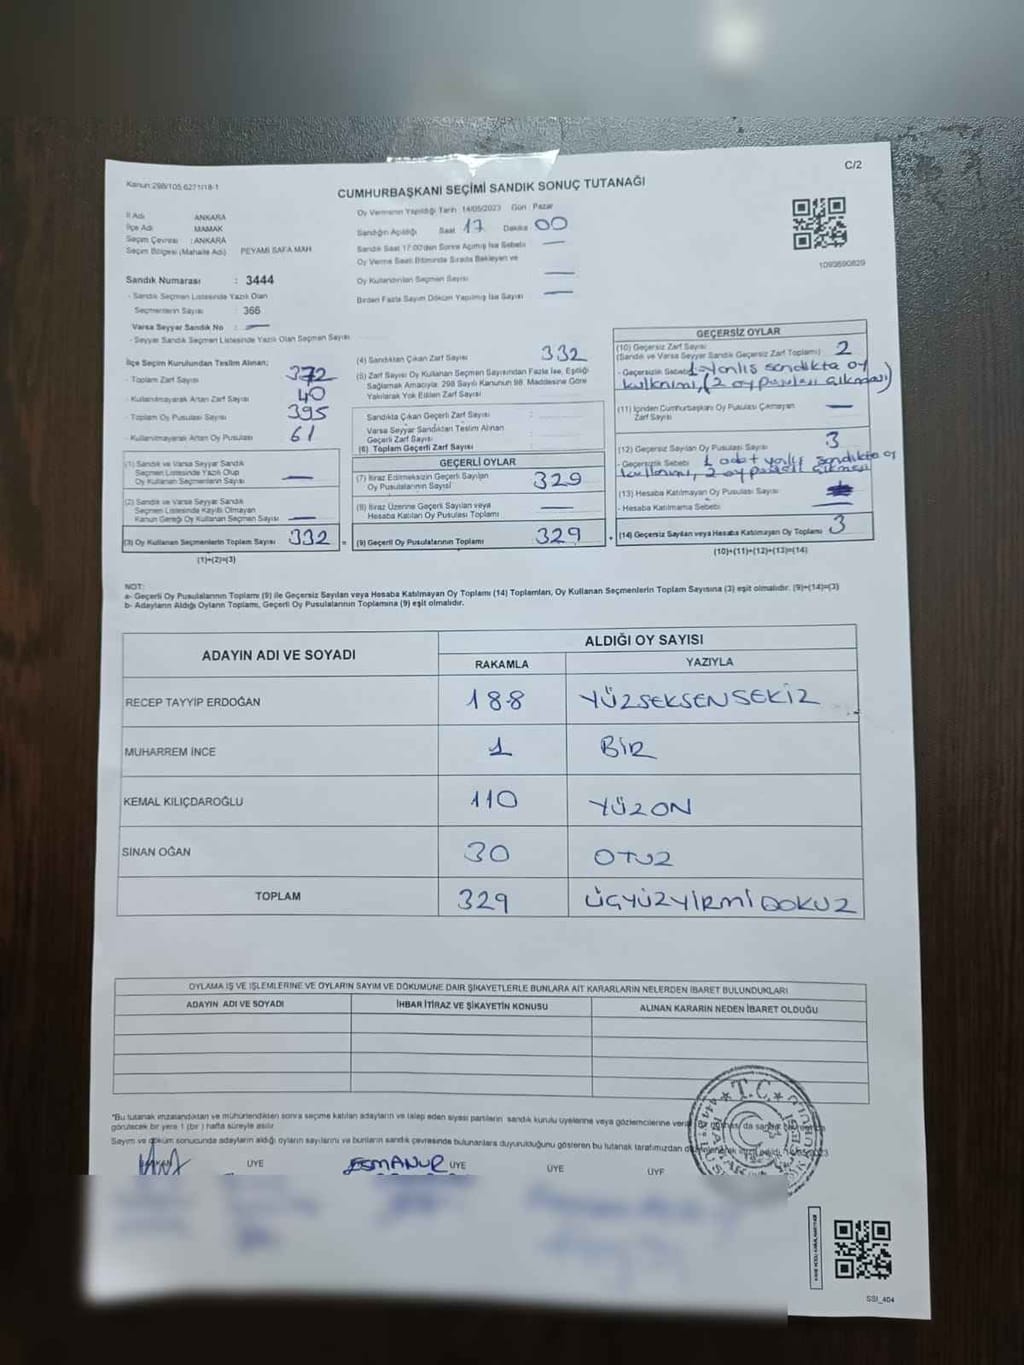 C/2
Kanun:298/105,6271/18-1
CUMHURBAŞKANI SEÇİMİ SANDIK SONUÇ TUTANAĞI
İl Adı ANKARA
İlçe Adı MAMAK
Seçim Çevresi : ANKARA
Seçim Bölgesi (Mahalle Adı) PEYAMİ SAFA MAH
Sandık Numarası : 3444
- Sandık Seçmen Listesinde Yazılı Olan
Seçmenlerin Sayısı : 366
Varsa Seyyar Sandık No : —
- Seyyar Sandık Seçmen Listesinde Yazılı Olan Seçmen Sayısı
Oy Vermenin Yapıldığı Tarih 14/05/2023 Gün : Pazar
Sandığın Açıldığı Saat 17 Dakika 00
Sandık Saat 17:00'den Sonra Açılmış İse Sebebi —
Oy Verme Saati Bitiminde Sırada Bekleyen ve
Oy Kullandırılan Seçmen Sayısı —
Birden Fazla Sayım Döküm Yapılmış İse Sayısı —
1093690829
İlçe Seçim Kurulundan Teslim Alınan;
- Toplam Zarf Sayısı 372
- Kullanılmayarak Artan Zarf Sayısı 40
- Toplam Oy Pusulası Sayısı 395
- Kullanılmayarak Artan Oy Pusulası 61
(1) Sandık ve Varsa Seyyar Sandık
Seçmen Listesinde Yazılı Olup
Oy Kullanan Seçmenlerin Sayısı —
(2) Sandık ve Varsa Seyyar Sandık
Seçmen Listesinde Kayıtlı Olmayan
Kanun Gereği Oy Kullanan Seçmen Sayısı —
(3) Oy Kullanan Seçmenlerin Toplam Sayısı 332
(1)+(2)=(3)
(4) Sandıktan Çıkan Zarf Sayısı 332
(5) Zarf Sayısı Oy Kullanan Seçmen Sayısından Fazla İse, Eşitliği
Sağlamak Amacıyla 298 Sayılı Kanunun 98. Maddesine Göre
Yakılarak Yok Edilen Zarf Sayısı
Sandıkta Çıkan Geçerli Zarf Sayısı
Varsa Seyyar Sandıktan Teslim Alınan
Geçerli Zarf Sayısı
(6) Toplam Geçerli Zarf Sayısı
GEÇERLİ OYLAR
(7) İtiraz Edilmeksizin Geçerli Sayılan
Oy Pusulalarının Sayısı 329
(8) İtiraz Üzerine Geçerli Sayılan veya
Hesaba Katılan Oy Pusulası Toplamı —
= (9) Geçerli Oy Pusulalarının Toplamı 329
GEÇERSİZ OYLAR
(10) Geçersiz Zarf Sayısı 2
(Sandık ve Varsa Seyyar Sandık Geçersiz Zarf Toplamı)
- Geçersizlik Sebebi 1 yanlış sandıkta oy
kullanımı, (2 oy pusulası çıkması)
(11) İçinden Cumhurbaşkanı Oy Pusulası Çıkmayan
Zarf Sayısı —
(12) Geçersiz Sayılan Oy Pusulası Sayısı 3
- Geçersizlik Sebebi 1 adet yanlış sandıkta oy
kullanımı, 2 oy pusulası çıkması
(13) Hesaba Katılmayan Oy Pusulası Sayısı
- Hesaba Katılmama Sebebi —
+ (14) Geçersiz Sayılan veya Hesaba Katılmayan Oy Toplamı 3
(10)+(11)+(12)+(13)=(14)
NOT:
a- Geçerli Oy Pusulalarının Toplamı (9) ile Geçersiz Sayılan veya Hesaba Katılmayan Oy Toplamı (14) Toplamları, Oy Kullanan Seçmenlerin Toplam Sayısına (3) eşit olmalıdır. (9)+(14)=(3)
b- Adayların Aldığı Oyların Toplamı, Geçerli Oy Pusulalarının Toplamına (9) eşit olmalıdır.
ADAYIN ADI VE SOYADI ALDIĞI OY SAYISI
RAKAMLA YAZIYLA
RECEP TAYYİP ERDOĞAN 188 YÜZSEKSENSEKİZ
MUHARREM İNCE 1 BİR
KEMAL KILIÇDAROĞLU 110 YÜZON
SİNAN OĞAN 30 OTUZ
TOPLAM 329 ÜÇYÜZYİRMİDOKUZ
OYLAMA İŞ VE İŞLEMLERİNE VE OYLARIN SAYIM VE DÖKÜMÜNE DAİR ŞİKAYETLERLE BUNLARA AİT KARARLARIN NELERDEN İBARET BULUNDUKLARI
ADAYIN ADI VE SOYADI İHBAR İTİRAZ VE ŞİKAYETİN KONUSU ALINAN KARARIN NEDEN İBARET OLDUĞU
*Bu tutanak imzalandıktan ve mühürlendikten sonra seçime katılan adayların ve talep eden siyasi partilerin sandık kurulu üyelerine veya gözlemcilerine
görülecek bir yere 1 (bir) hafta süreyle asılır.
Sayım ve döküm sonucunda adayların aldığı oyların sayılarını ve bunların sandık çevresinde bulunanlara duyurulduğunu gösteren bu tutanak tarafımızdan
T.C.
ÜYE ESMANUR ÜYE ÜYE ÜYE
SSI_404